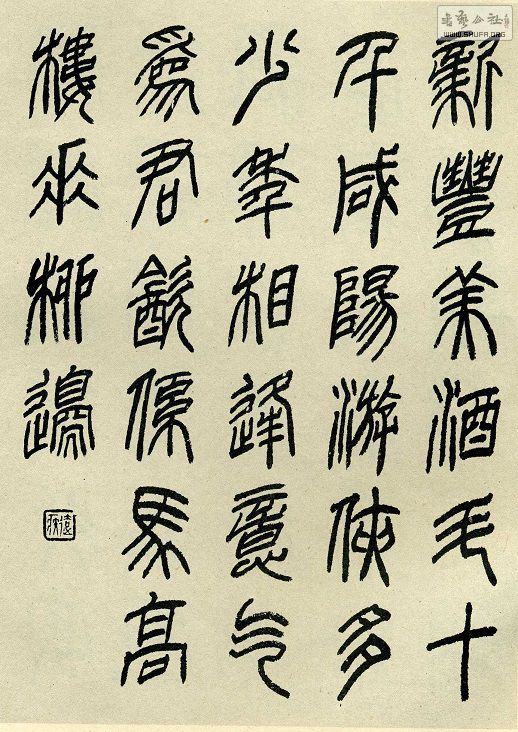 書藝公社
WWW.SHUFA.ORG
新豐美酒斗十
千咸陽游俠多
少年相逢意气
爲君飲係馬高
樓垂柳邊